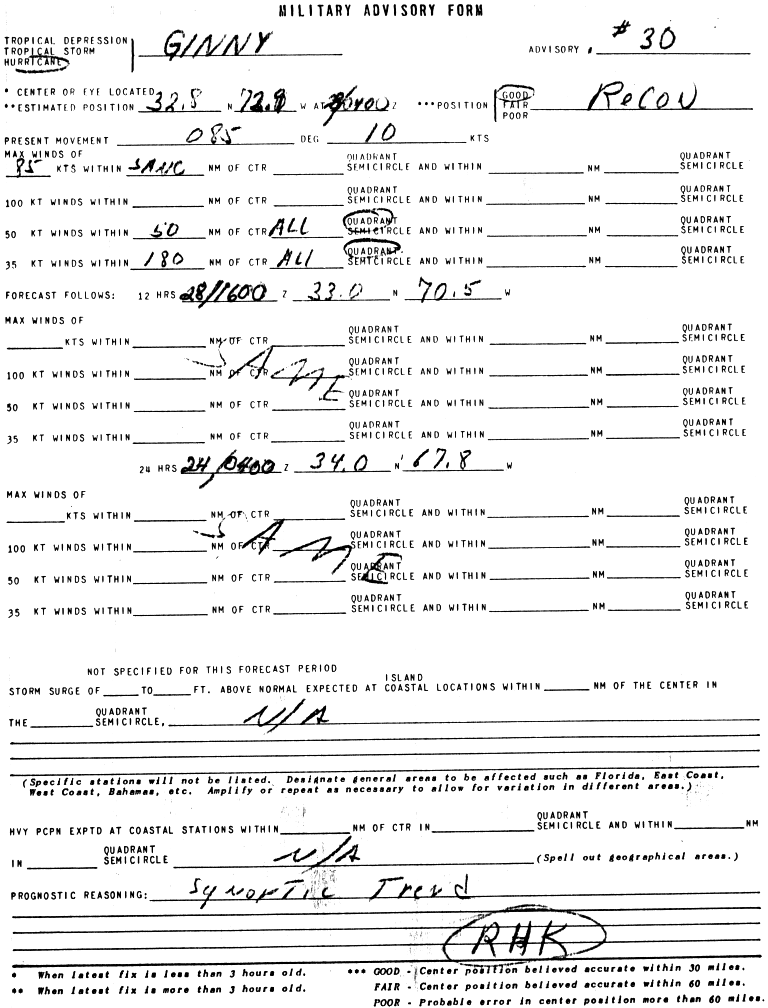 MILITARY ADVISORY FORM
TROPICAL DEPRESSION
TROPICAL STORM GINNY ADVISORY # #30
HURRICANE
* CENTER OR EYE LOCATED GOOD
**ESTIMATED POSITION 32.8 N 72.9 W AT Z ***POSITION FAIR RECON
POOR
PRESENT MOVEMENT 085 DEG 10 KTS
MAX WINDS OF QUADRANT QUADRANT
85 KTS WITHIN NM OF CTR SEMICIRCLE AND WITHIN NM SEMICIRCLE
QUADRANT QUADRANT
100 KT WINDS WITHIN NM OF CTR SEMICIRCLE AND WITHIN NM SEMICIRCLE
QUADRANT QUADRANT
50 KT WINDS WITHIN 50 NM OF CTR ALL SEMICIRCLE AND WITHIN NM SEMICIRCLE
QUADRANT QUADRANT
35 KT WINDS WITHIN 180 NM OF CTR ALL SEMICIRCLE AND WITHIN NM SEMICIRCLE
FORECAST FOLLOWS: 12 HRS 28/1600 Z 33.0 N 70.5 W
MAX WINDS OF QUADRANT QUADRANT
KTS WITHIN NM OF CTR SEMICIRCLE AND WITHIN NM SEMICIRCLE
SAME
QUADRANT QUADRANT
100 KT WINDS WITHIN NM OF CTR SEMICIRCLE AND WITHIN NM SEMICIRCLE
QUADRANT QUADRANT
50 KT WINDS WITHIN NM OF CTR SEMICIRCLE AND WITHIN NM SEMICIRCLE
QUADRANT QUADRANT
35 KT WINDS WITHIN NM OF CTR SEMICIRCLE AND WITHIN NM SEMICIRCLE
24 HRS 24/0400 Z 34.0 N 67.8 W
MAX WINDS OF QUADRANT QUADRANT
KTS WITHIN NM OF CTR SEMICIRCLE AND WITHIN NM SEMICIRCLE
SAME
QUADRANT QUADRANT
100 KT WINDS WITHIN NM OF CTR SEMICIRCLE AND WITHIN NM SEMICIRCLE
QUADRANT QUADRANT
50 KT WINDS WITHIN NM OF CTR SEMICIRCLE AND WITHIN NM SEMICIRCLE
QUADRANT QUADRANT
35 KT WINDS WITHIN NM OF CTR SEMICIRCLE AND WITHIN NM SEMICIRCLE
NOT SPECIFIED FOR THIS FORECAST PERIOD
ISLAND
STORM SURGE OF TO FT. ABOVE NORMAL EXPECTED AT COASTAL LOCATIONS WITHIN NM OF THE CENTER IN
QUADRANT
THE SEMICIRCLE, N/A
(Specific stations will not be listed. Designate general areas to be affected such as Florida, East Coast,
West Coast, Bahamas, etc. Amplify or repeat as necessary to allow for variation in different areas.)
QUADRANT
HVY PCPN EXPTD AT COASTAL STATIONS WITHIN NM OF CTR IN SEMICIRCLE AND WITHIN NM
QUADRANT
IN SEMICIRCLE N/A (Spell out geographical areas.)
PROGNOSTIC REASONING: Synoptic Trend
RHK
* When latest fix is less than 3 hours old. *** GOOD - Center position believed accurate within 30 miles.
** When latest fix is more than 3 hours old. FAIR - Center position believed accurate within 60 miles.
POOR - Probable error in center position more than 60 miles.